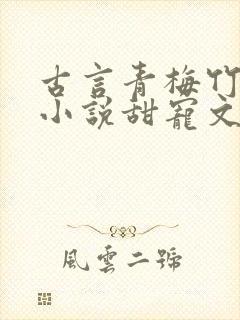 古言青梅竹
小說甜寵文
風雲二號